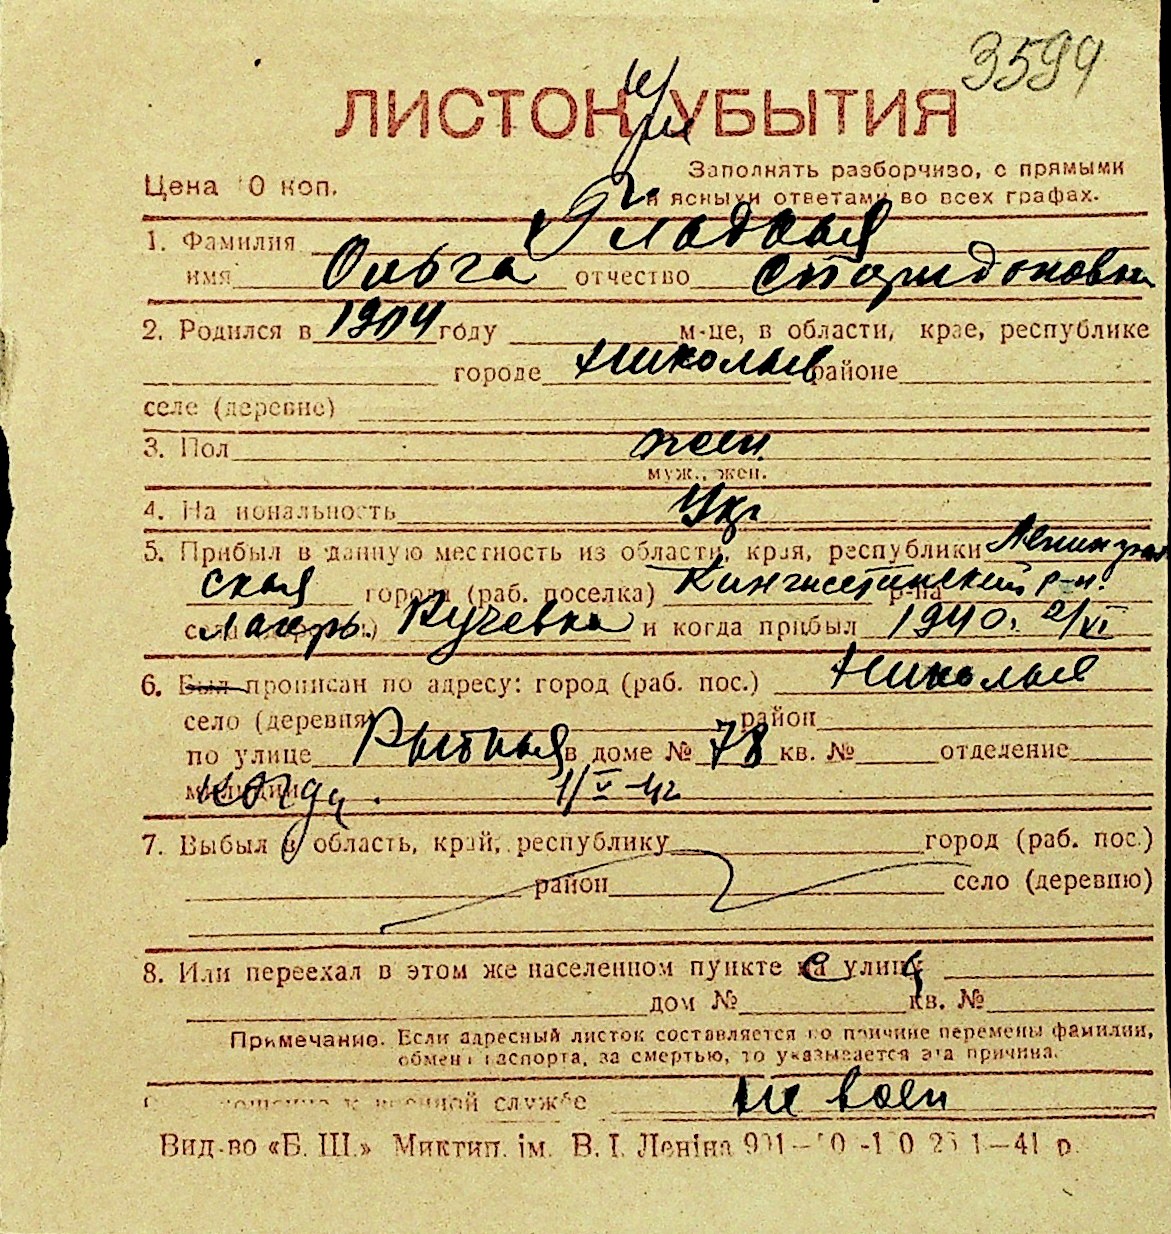 3599
ЛИСТОК УБЫТИЯ
Цена 0 коп.
Заполнять разборчиво, с прямыми
и ясными ответами во всех графах.
1. Фамилия Гладкая
имя Ольга отчество Спиридоновна
2. Родился в 1904 году м-це, в области, крае, республике
городе Николаев районе
селе (деревне)
3. Пол жен.
муж., жен.
4. Национальность Укр
5. Прибыл в данную местность из области, края, республики Ленинград
ская города (раб. поселка) Кингисепский р-н. р-на
Лагерь Кучевка и когда прибыл 1940. 2/VI
6. Был прописан по адресу: город (раб. пос.) Николаев
село (деревня) район
по улице Рыбная в доме № 78 кв. № отделение
милиции когда. 1/V-41г
7. Выбыл в область, край, республику город (раб. пос.)
район село (деревню)
8. Или переехал в этом же населенном пункте на улицу
дом № кв. №
Примечание. Если адресный листок составляется по причине перемены фамилии,
обмена паспорта, за смертью, то указывается эта причина.
военной службе не воен
Вид-во «Б. Ш.» Миктип. ім. В. І. Леніна